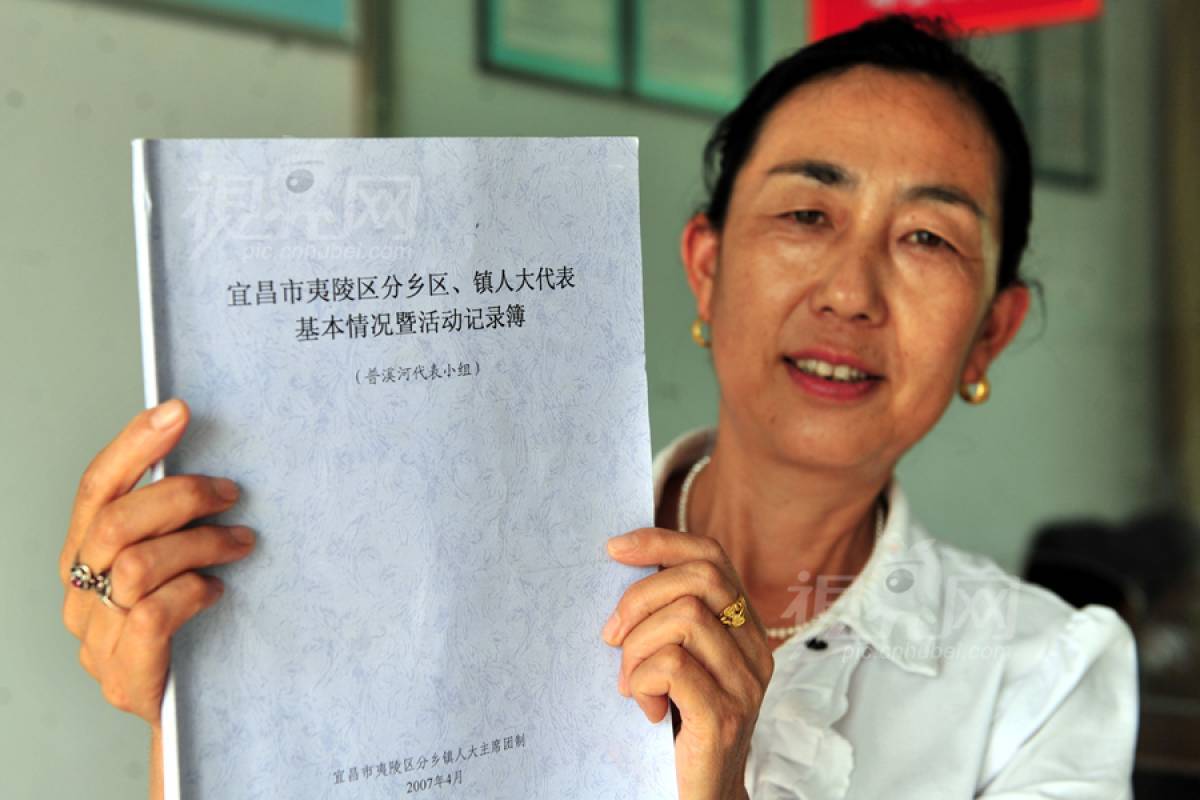 视界网
pic.cnhubei.com
宜昌市夷陵区分乡区、镇人大代表
基本情况暨活动记录簿
(普溪河代表小组)
视界网
pic.cnhubei.com
宜昌市夷陵区分乡镇人大主席团制
2007年4月